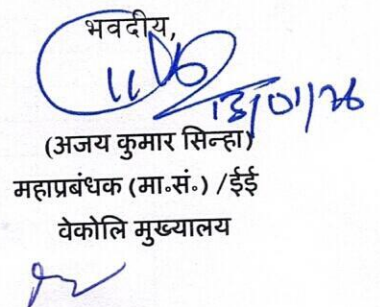 भवदीय,
13/01/26
(अजय कुमार सिन्हा)
महाप्रबंधक (मा॰सं॰) /ईई
वेकोलि मुख्यालय